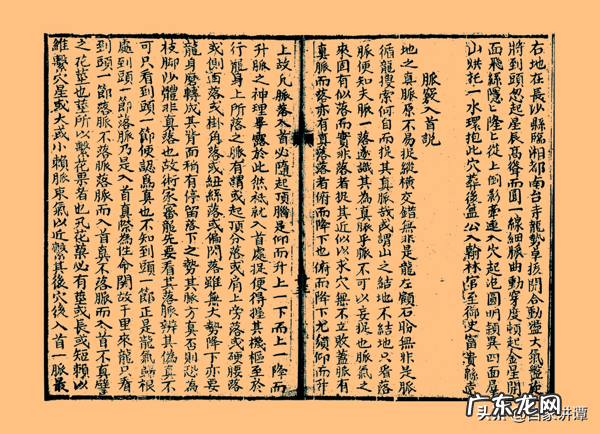 右地在長沙縣臨湘都南台寺龍勢卓拔開合動盪大氣盤旋
將到頭忽起星辰高聳而圓一線細脈曲動穿度頓起金星開
面飛絲隱隱隆隆從上倒影牽連入穴起泡圓明顴異四面屏
山烘托一水環抱此穴葬後盪公入翰林官至御史富貴綿遠
脈竅入首說
地之真脈原不易捉縱橫交錯無非是龍左顧右盼無非是脈
循龍搜索何自而捉其真脈哉或謂山之結地不結地只看落
脈便知夫脈一落遂識其為真脈乎脈不可以妄捉也脈氣之
來固有似落而實非落者捉其近似以求穴無不立敗蓋脈有
真脈而落亦有真落落者俯而降下也俯而降下尤須仰而升
上故凡脈落入首必隨起頂腦是仰而升上一下而上一降而
升脈之神理畢露於此然祗就入首處捉便得握其機樞至於
行龍身上所落之脈有謂或起頂分落或肩上旁落或硬腰落
或側面落或掛角落或紐絲落或偏閃落雖無大勢降下亦要
龍身磨轉成其背而稍有停留落下之勢其脈方真否則恐為
枝脚沙體非真落也故術家審龍先要看其落脈辨其偽真不
可只看到頭一節便認為真也不知到頭一節正是龍氣歸根
處到頭一節落脈乃是入首真際為性命關故千里來龍只看
到頭一節落脈不落脈落脈而入首真不落脈而入首不真譬
之花莖也莖所以繫花果者也凡花菓必有莖或長或短賴以
維繫穴星或大或小賴脈束氣以近繫其後穴後入首一脈最
头条@百家讲谭
广东龙网